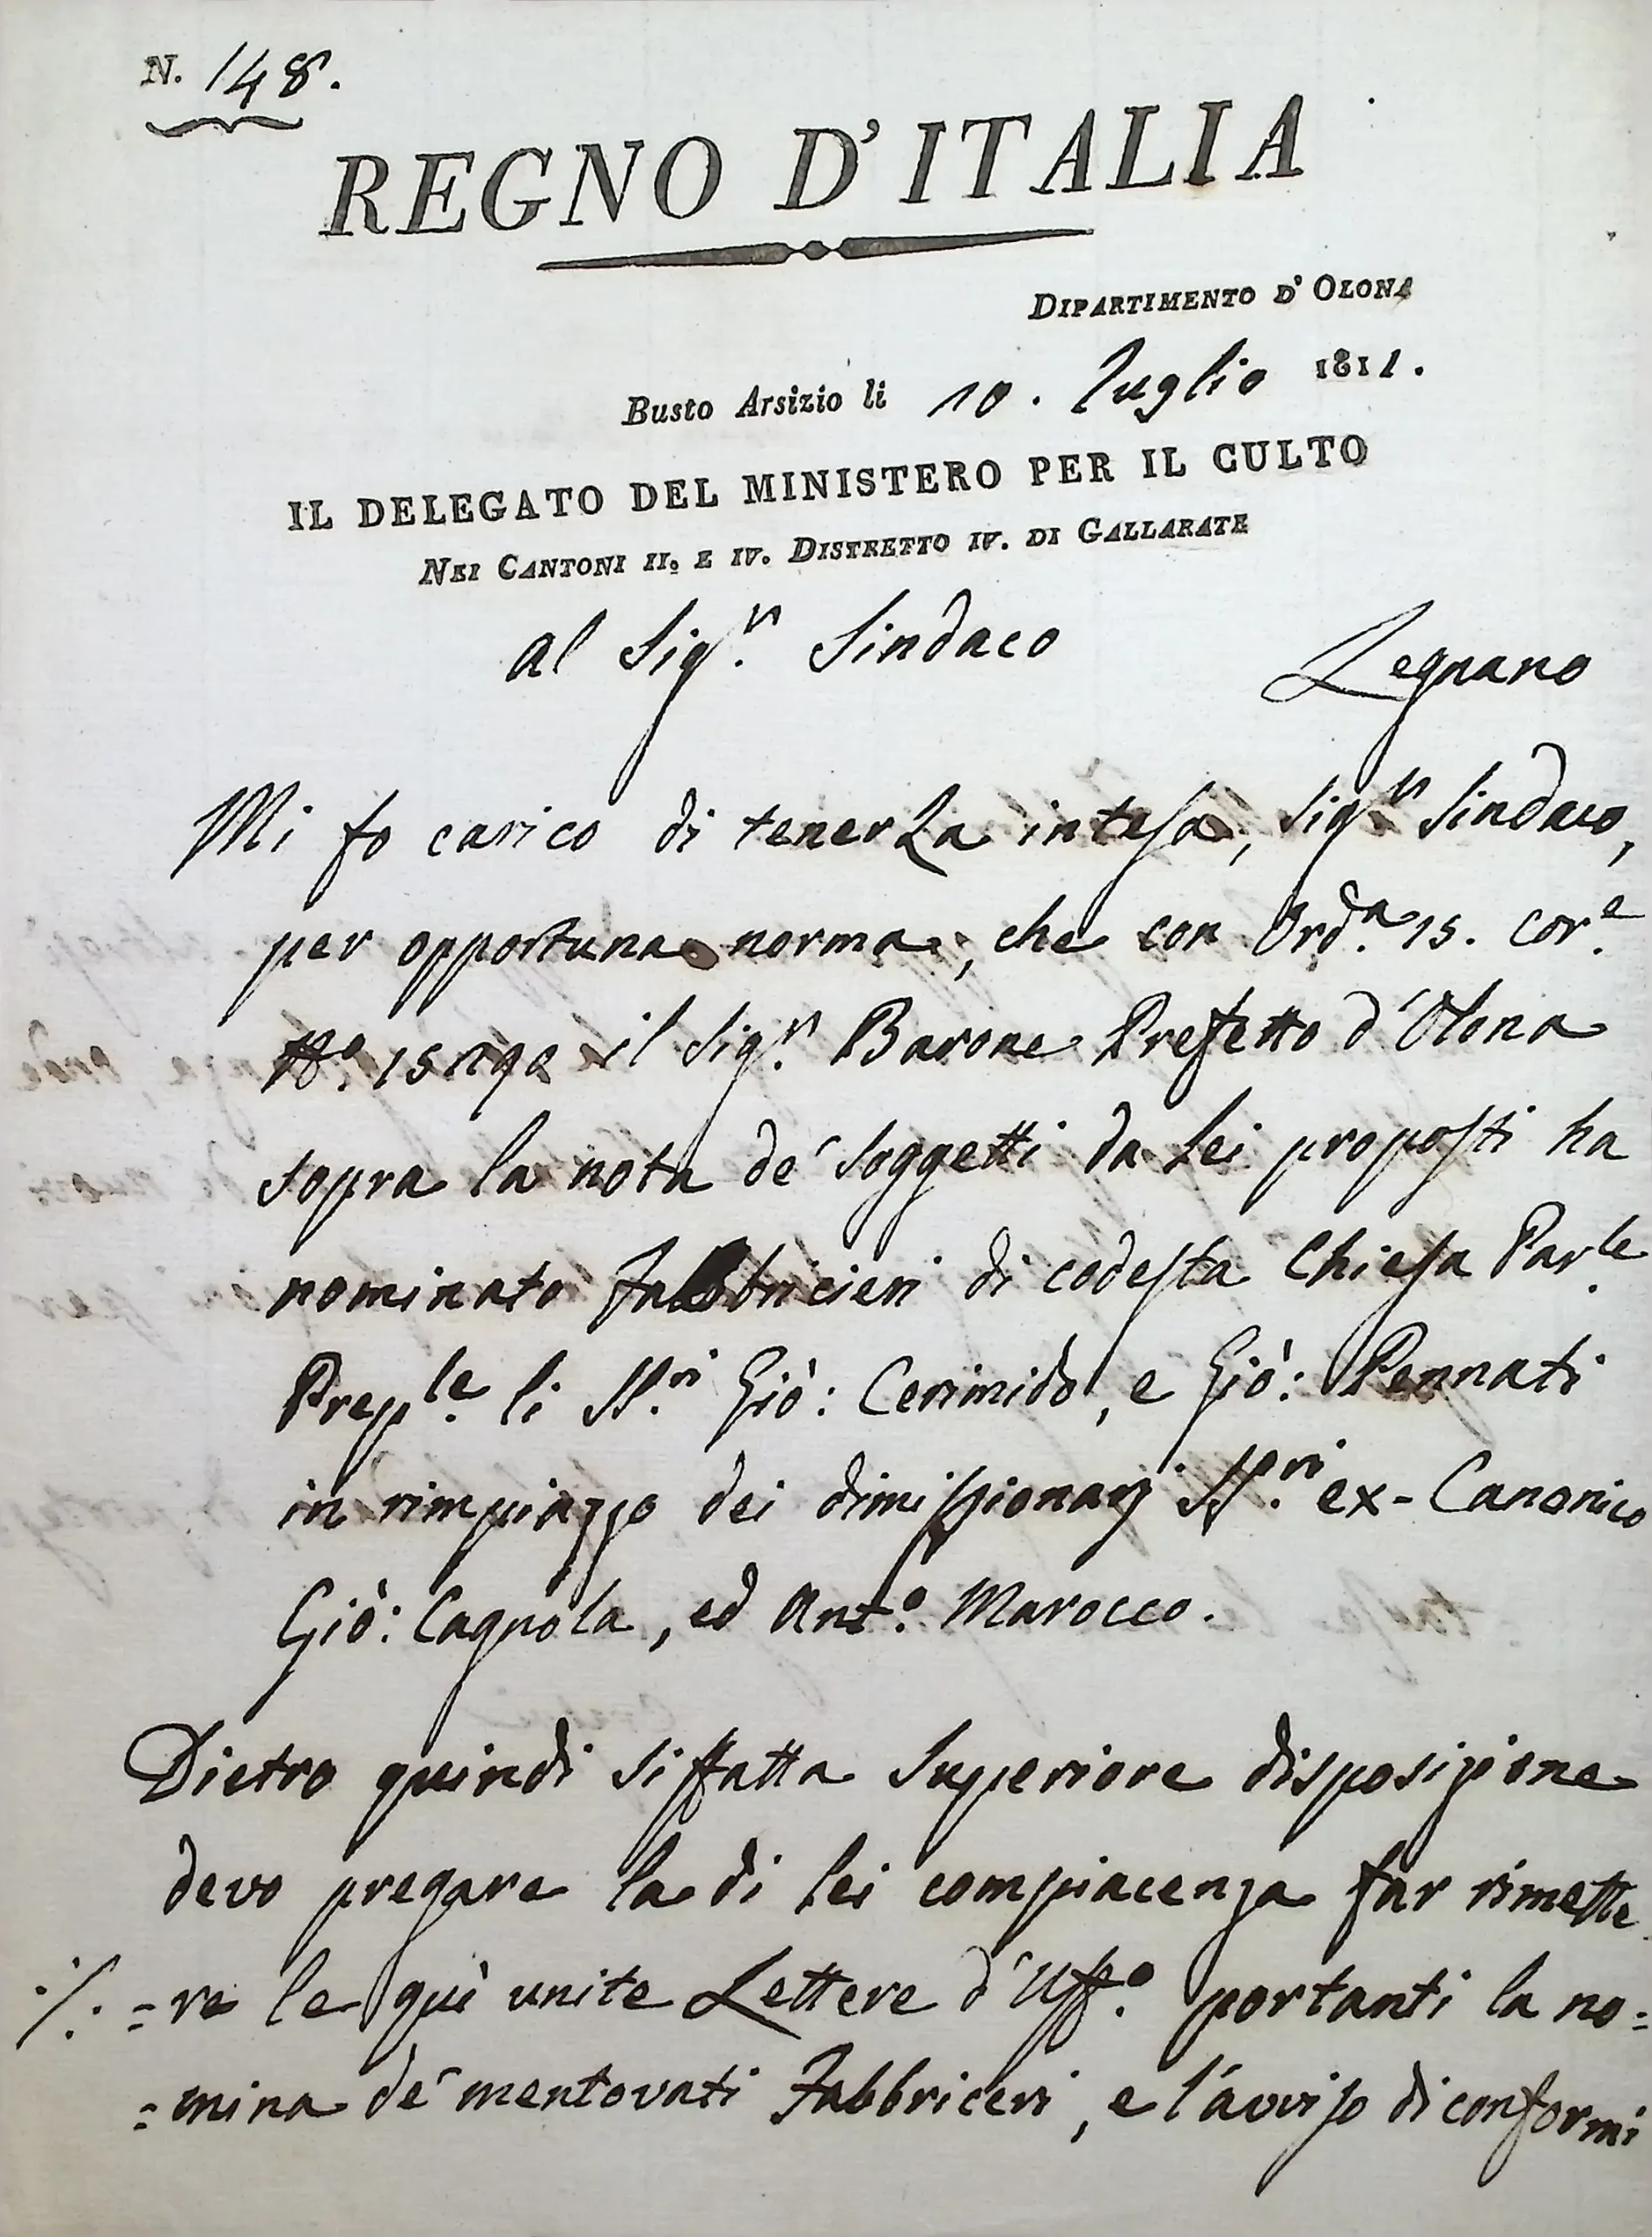 N. 148.
REGNO D'ITALIA
DIPARTIMENTO D' OLONA
Busto Arsizio li 10. Luglio 1811.
IL DELEGATO DEL MINISTERO PER IL CULTO
NEI CANTONI II. E IV. DISTRETTO IV. DI GALLARATE
Al Sigr. Sindaco
Legnano
Mi fo carico di tenerLa intesa, Sigr. Sindaco,
per opportuna norma, che con Orda. 15. core.
il Sigr. Barone Prefetto d'Olona
sopra la nota de' Soggetti da Lei proposti ha
nominato Fabbricieri di codesta Chiesa Parle.
Preple. li SSri. Giò: Cerimido, e Giò: Pennati
in rimpiazzo dei dimissionarj SSri. ex-Canonico
Giò: Cagnola, ed Anto. Marocco.
Dietro quindi siffatta Superiore disposizione
devo pregare la di lei compiacenza far rimette
./. =re le quì unite Lettere d'Uffo. portanti la no=
=mina de' mentovati Fabbriceri, e l'avviso di conformi